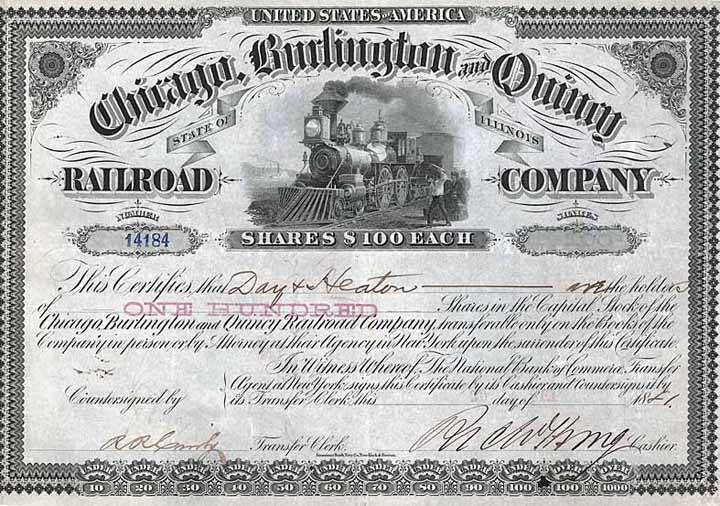 UNITED STATES OF AMERICA
Chicago, Burlington and Quincy
STATE OF ILLINOIS
RAILROAD COMPANY
NUMBER SHARES
14184
SHARES $100 EACH
This Certifies, that Day & Heaton are the holders
of ONE HUNDRED Shares in the Capital Stock of the
Chicago, Burlington and Quincy Railroad Company, transferable only on the Books of the
Company in person or by Attorney at their Agency in New York upon the surrender of this Certificate.
In Witness Whereof, The National Bank of Commerce, Transfer
Agent at New York, signs this Certificate by its Cashier and Countersigns it by
Countersigned by its Transfer Clerk this day of 1881.
Transfer Clerk. Cashier.
UNDER 10 UNDER 20 UNDER 30 UNDER 40 UNDER 50 UNDER 60 UNDER 70 UNDER 80 UNDER 90 UNDER 100 OVER 100 OVER 1000